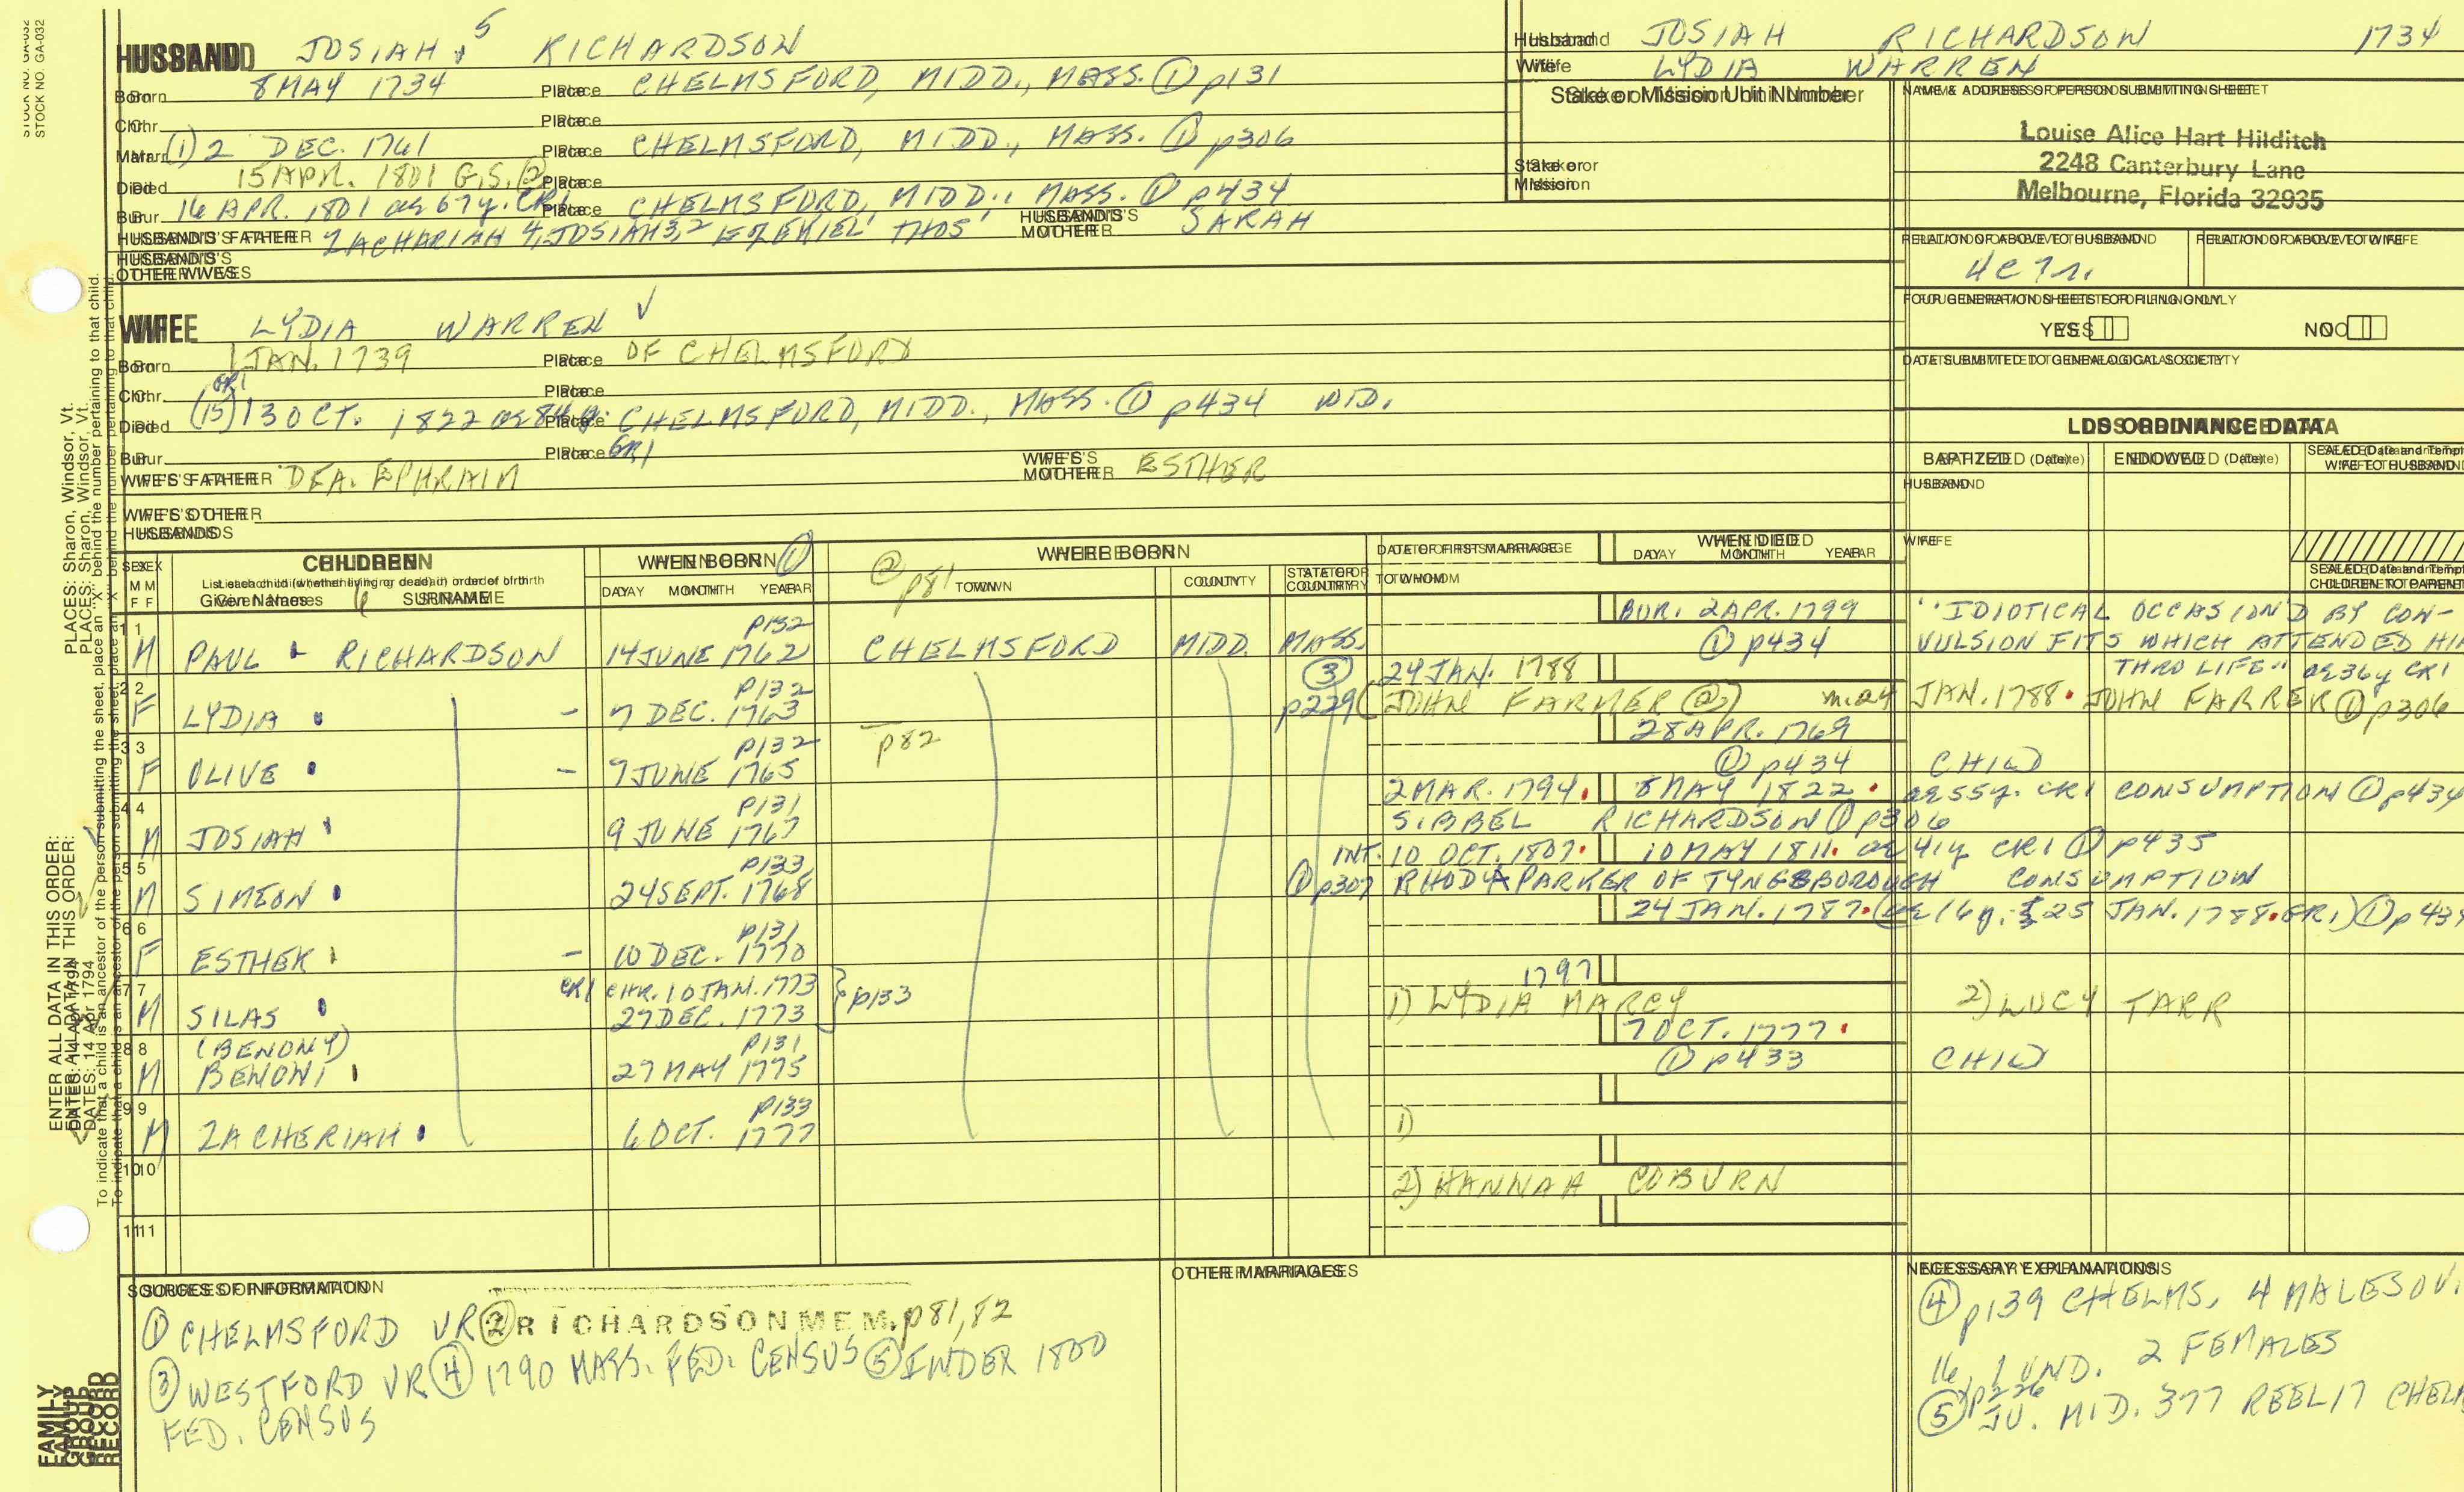 STOCK NO. GA-032
HUSBAND JOSIAH 5 RICHARDSON
Born 8 MAY 1734 Place CHELMSFORD, MIDD., MASS. ① p131
Chr. Place
Marr. (1) 2 DEC. 1761 Place CHELMSFORD, MIDD., MASS. ① p306
Died 15 APR. 1801 G.S. ② Place
Bur. 16 APR. 1801 ae 67y. CR1 Place CHELMSFORD, MIDD., MASS. ① p434
HUSBAND'S FATHER ZACHARIAH 4, JOSIAH 3,2 EZEKIEL' THOS' HUSBAND'S MOTHER SARAH
HUSBAND'S OTHER WIVES
Husband JOSIAH RICHARDSON 1734
Wife LYDIA WARREN
Stake or Mission Unit Number
Stake or Mission
NAME & ADDRESS OF PERSON SUBMITTING SHEET
Louise Alice Hart Hilditch
2248 Canterbury Lane
Melbourne, Florida 32935
RELATION OF ABOVE TO HUSBAND RELATION OF ABOVE TO WIFE
FOUR GENERATION SHEETS FOR FILING ONLY
YES NO
DATE SUBMITTED TO GENEALOGICAL SOCIETY
WIFE LYDIA WARREN ✓
Born 1 JAN. 1739 Place OF CHELMSFORD
Chr. Place
Died (15) GR1 13 OCT. 1822 ae 84y. Place CHELMSFORD, MIDD., MASS. ① p434 WID.
Bur. Place GR1
WIFE'S FATHER DEA. EPHRAIM WIFE'S MOTHER ESTHER
WIFE'S OTHER HUSBANDS
LDS ORDINANCE DATA
BAPTIZED (Date) ENDOWED (Date) SEALED (Date and Templ
WIFE TO HUSBAND
HUSBAND
WIFE
SEALED (Date and Templ
CHILDREN TO PARENT
SEX M F CHILDREN
List each child (whether living or dead) in order of birth
Given Names 6 SURNAME
WHEN BORN ① DAY MONTH YEAR
WHERE BORN ② p81 TOWN COUNTY STATE OR COUNTRY
DATE OF FIRST MARRIAGE TO WHOM
WHEN DIED DAY MONTH YEAR
1 M PAUL RICHARDSON p132 14 JUNE 1762 CHELMSFORD MIDD. MASS. BUR. 2 APR. 1799 ① p434 "IDIOTICAL OCCASION'D BY CON-
VULSION FITS WHICH ATTENDED HIM
THRO LIFE" ae 36y CR1
2 F LYDIA - p132 7 DEC. 1763 ③ p229 24 JAN. 1788 (JOHN FARMER ②) m. 24 JAN. 1788. JOHN FARRER ① p306
3 F OLIVE - p132 7 JUNE 1765 p82 28 APR. 1769 ① p434 CHILD
4 M JOSIAH p131 9 JUNE 1767 2 MAR. 1794. SIBBEL RICHARDSON ① p306 8 MAY 1822. ae 55y. CR1 CONSUMPTION ① p434
5 M SIMEON p133 24 SEPT. 1768 INT. 10 OCT. 1807. ① p307 RHODA PARKER OF TYNGSBOROUGH 10 MAY 1811. ae 41y CR1 ① p435 CONSUMPTION
6 F ESTHER - p131 10 DEC. 1770 24 JAN. 1787. (ae 16y. & 25 JAN. 1788. GR1) ① p43
7 M SILAS CR1 CHR. 10 JAN. 1773 27 DEC. 1773 } p133 1797 1) LYDIA MARCY 2) LUCY TARR
8 M (BENONY) BENONI p131 27 MAY 1775 7 OCT. 1777. ① p433 CHILD
9 M ZACHERIAH p133 6 OCT. 1777 1)
10 2) HANNAH COBURN
11
SOURCES OF INFORMATION
① CHELMSFORD VR ② RICHARDSON MEM. p81,82
③ WESTFORD VR ④ 1790 MASS. FED. CENSUS ⑤ INDEX 1800
FED. CENSUS
OTHER MARRIAGES
NECESSARY EXPLANATIONS
④ p139 CHELMS, 4 MALES OV.
16, 1 UND. 2 FEMALES
⑤ p226 JU. MID. 377 REEL 17 CHELM
ENTER ALL DATA IN THIS ORDER:
DATES: 14 Apr 1794
PLACES: Sharon, Windsor, Vt.
To indicate that a child is an ancestor of the person submitting the sheet, place an "X" behind the number pertaining to that child.
FAMILY GROUP RECORD